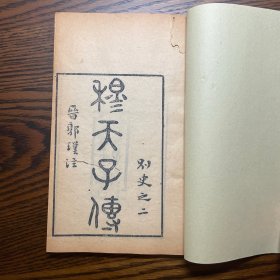 別史之二
穆天子傳
晉郭璞注